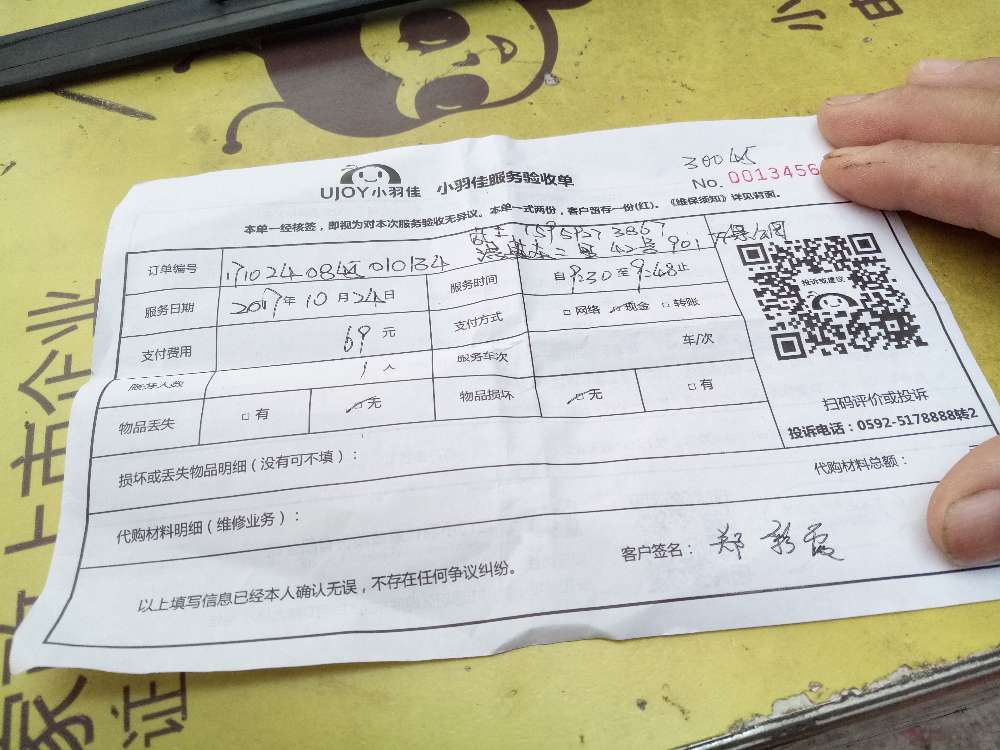 30045
UJOY小羽佳 小羽佳服务验收单 No. 0013456
本单一经核签，即视为对本次服务验收无异议。本单一式两份，客户留存一份(红)。《维保须知》详见背面。
15959273867
二里42号901
订单编号
服务日期 2017年10月24日 服务时间 自9:30至9:48止
支付费用 69元 支付方式 □网络 ☑现金 □转账
服务人数 1人 服务车次 车/次
物品丢失 □有 ☑无 物品损坏 ☑无 □有
投诉或建议
扫码评价或投诉
投诉电话：0592-5178888转2
损坏或丢失物品明细（没有可不填）：
代购材料明细（维修业务）： 代购材料总额：
客户签名： 郑彩霞
以上填写信息已经本人确认无误，不存在任何争议纠纷。
家政上市企业
证
小